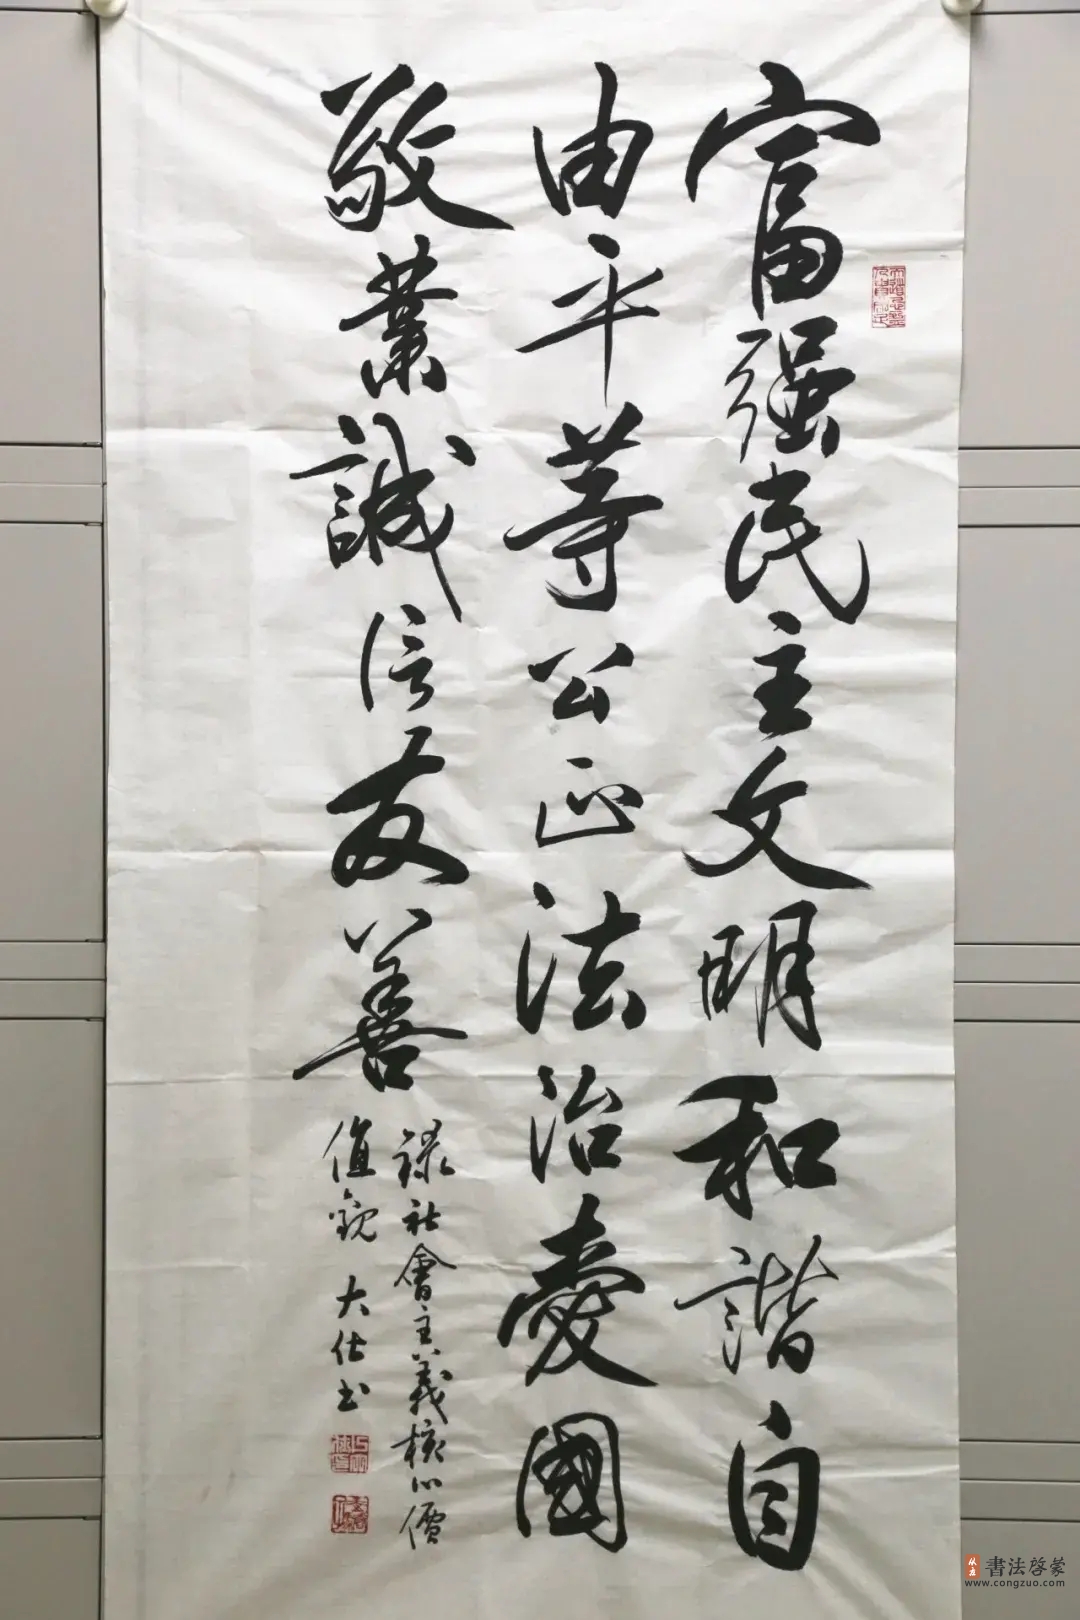 富强民主文明和諧自
由平等公正法治愛國
敬業誠信友善
錄社會主義核心價
值觀 大仕书
書法啓蒙
www.congzuo.com